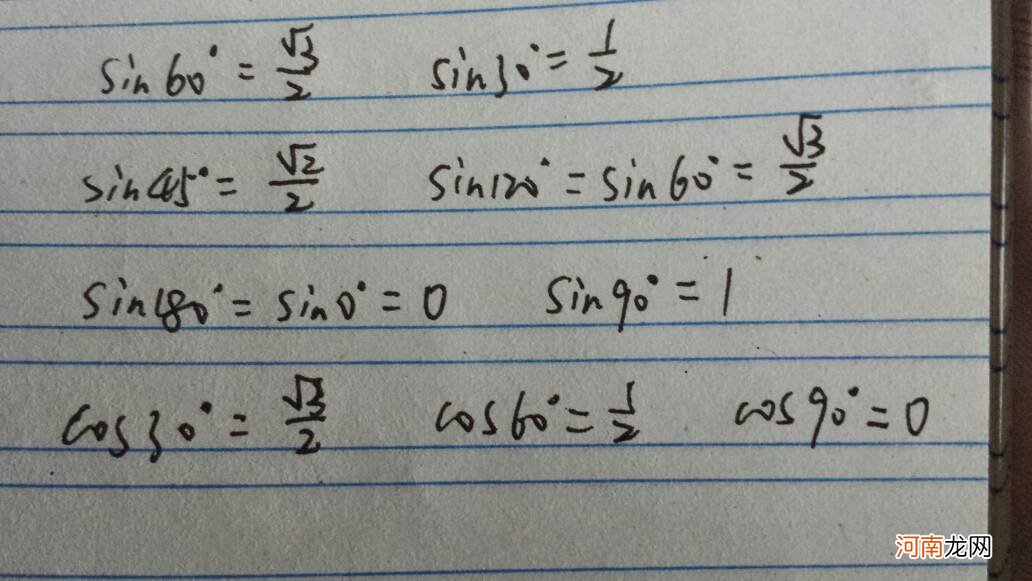 sin60° = √3/2 sin30° = 1/2
sin45° = √2/2 sin120° = sin60° = √3/2
sin180° = sin0° = 0 sin90° = 1
cos30° = √3/2 cos60° = 1/2 cos90° = 0
河南龙网